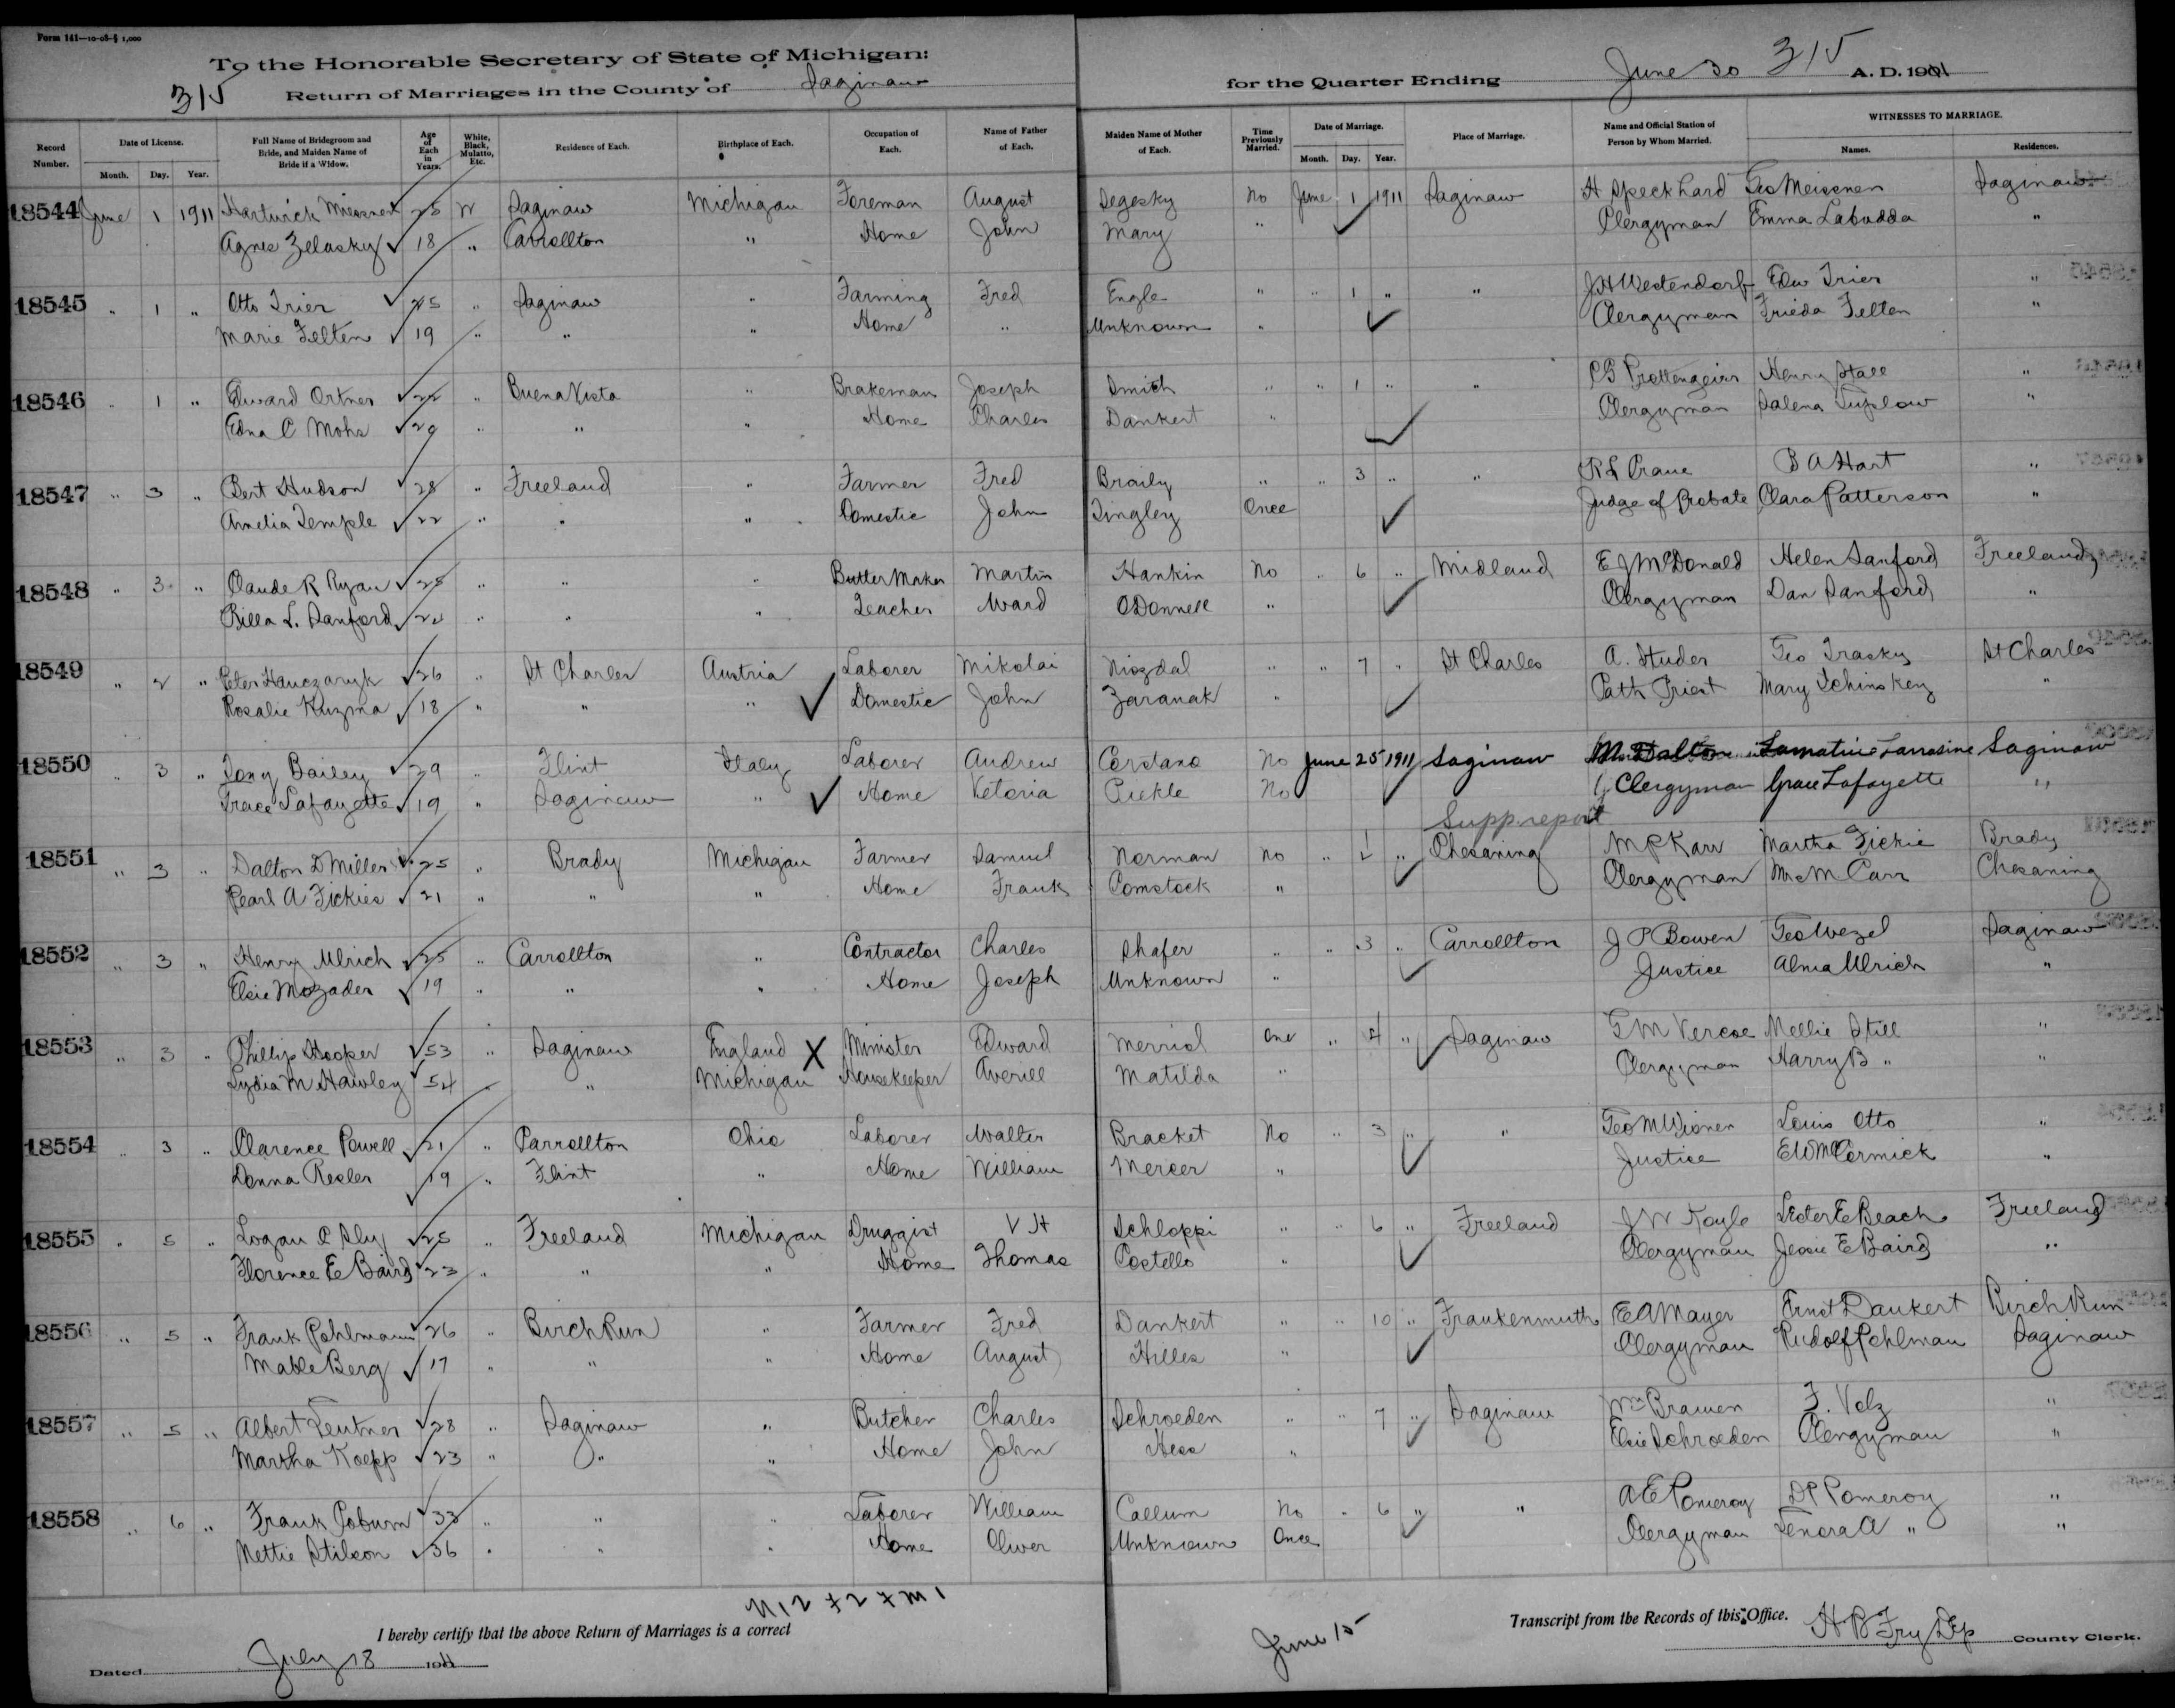 Form 141—10-08-§ 1,000
To the Honorable Secretary of State of Michigan:
315 Return of Marriages in the County of Saginaw
for the Quarter Ending June 30 315 A. D. 1911
Record Number. Date of License. Month. Day. Year. Full Name of Bridegroom and Bride, and Maiden Name of Bride if a Widow. Age of Each in Years. White, Black, Mulatto, Etc. Residence of Each. Birthplace of Each. Occupation of Each. Name of Father of Each. Maiden Name of Mother of Each. Time Previously Married. Date of Marriage. Month. Day. Year. Place of Marriage. Name and Official Station of Person by Whom Married. WITNESSES TO MARRIAGE. Names. Residences.
18544 June 1 1911 Hartwick Meissner 25 W Saginaw Michigan Foreman August Segesky No June 1 1911 Saginaw H Speckhard Geo Meissner Saginaw
Agnes Zelasky 18 " Carrollton " Home John Mary " Clergyman Emma Labadda "
18545 " 1 " Otto Trier 25 " Saginaw " Farming Fred Engle " " 1 " " J H Westendorf Edw Trier "
Marie Felten 19 " " " Home " Unknown " Clergyman Frieda Felten "
18546 " 1 " Edward Ortner 22 " Buena Vista " Brakeman Joseph Smith " " 1 " " Henry Stall "
Edna C Mohs 29 " " " Home Charles Dankert " Clergyman Salena "
18547 " 3 " Bert Hudson 28 " Freeland " Farmer Fred Braily " " 3 " " R L Crane B A Hart "
Amelia Temple 22 " " " Domestic John Tingley Once Judge of Probate Clara Patterson "
18548 " 3 " Claude R Ryan 25 " " " Butter Maker Martin Hankin No " 6 " Midland E J McDonald Helen Sanford Freeland
Rilla L. Sanford 22 " " " Teacher Ward ODonnell " Clergyman Dan Sanford "
18549 " 2 " Peter Hanczaryk 26 " St Charles Austria Laborer Mikolai Niozdal " " 7 " St Charles A. Studer Geo Trasky St Charles
Rosalie Kuzma 18 " " " Domestic John Zaranak " Cath Priest Mary Tchinskey "
18550 " 3 " Tony Bailey 29 " Flint Italy Laborer Andrew Cordano No June 25 1911 Saginaw M Dalton Saginaw
Grace Lafayette 19 " Saginaw " Home Vetoria Pickle No Clergyman Grace Lafayette "
Supp. report
18551 " 3 " Dalton D Miller 25 " Brady Michigan Farmer Samuel Norman No " " Chesaning M P Karr Martha Fickie Brady
Pearl A Fickies 21 " " " Home Frank Comstock " Clergyman Mrs M Carr Chesaning
18552 " 3 " Henry Ulrich 25 " Carrollton " Contractor Charles Shafer " " 3 " Carrollton J P Bowen Geo Wezel Saginaw
Elsie Mozader 19 " " " Home Joseph Unknown " Justice Alma Ulrich "
18553 " 3 " Phillip Hooper 53 " Saginaw England X Minister Edward Merriol One " 4 " Saginaw G M Vercoe Mellie Still "
Lydia M Hawley 54 " " Michigan Housekeeper Averill Matilda " Clergyman Harry B " "
18554 " 3 " Clarence Powell 21 " Carrollton Ohio Laborer Walter Bracket No " 3 " " Geo M Wisner Louis Otto "
Donna Resler 19 " Flint " Home William Mercer " Justice E W McCormick "
18555 " 5 " Logan C Sly 25 " Freeland Michigan Druggist V H Schloppi " " 6 " Freeland J W Koyle Lester E Beach Freeland
Florence E Baird 23 " " " Home Thomas Costello " Clergyman Jessie E Baird "
18556 " 5 " Frank Pohlmann 26 " Birch Run " Farmer Fred Dankert " " 10 " Frankenmuth E A Mayer Ernst Daukert Birch Run
Mable Berg 17 " " " Home August Hilles " Clergyman Rudolf Pohlman Saginaw
18557 " 5 " Albert Leutner 28 " Saginaw " Butcher Charles Schroeden " " 7 " Saginaw Wm Bramen F. Volz "
Martha Koepp 23 " " " Home John Hess " Elsie Schroeden Clergyman "
18558 " 6 " Frank Coburn 33 " " " Laborer William Callum No " 6 " " A E Pomeroy D P Pomeroy "
Nettie Stilson 36 " " " Home Oliver Unknown Once Clergyman Lenora A " "
I hereby certify that the above Return of Marriages is a correct Transcript from the Records of this Office.
June 15
H B Fry Dep County Clerk.
Dated July 18 1911